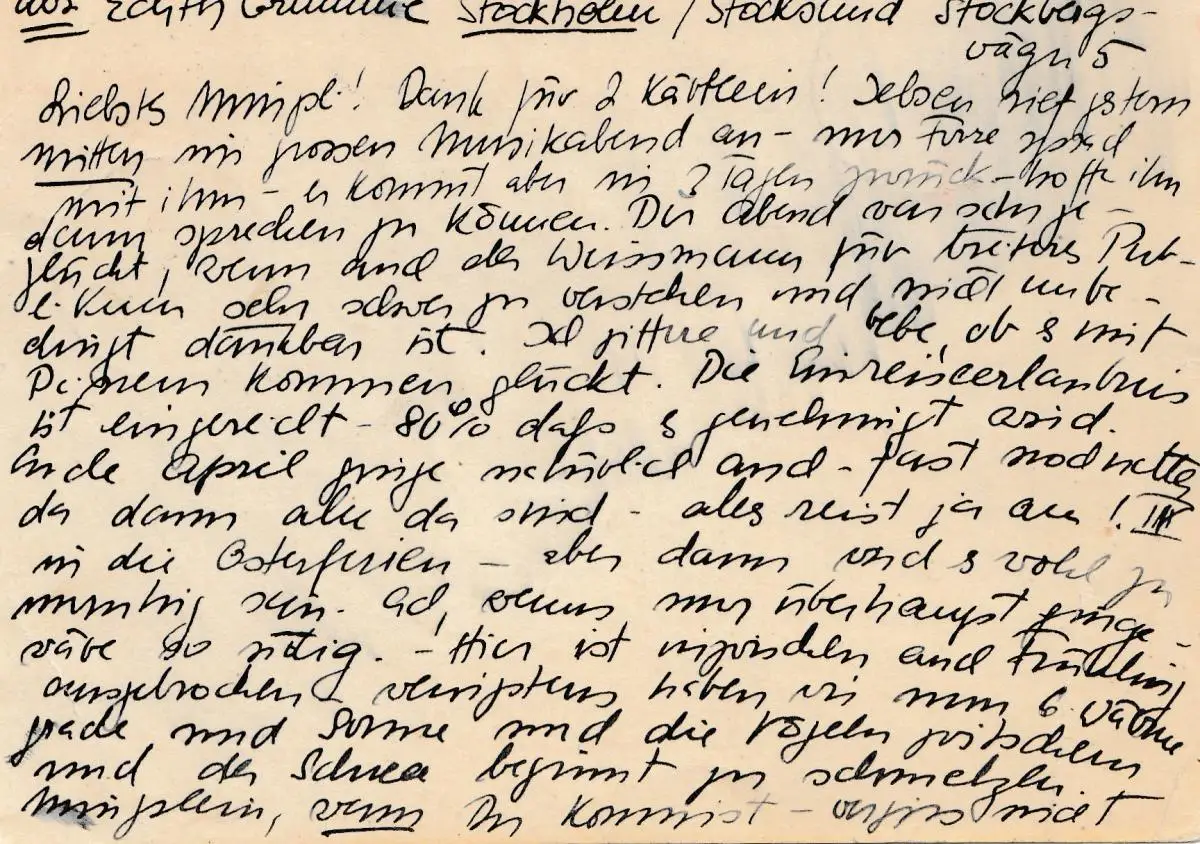 Edith Grumme Stockholm / Stocksund Stockbergs-
vägn 5
Liebstes Mungli! Dank für 2 Kärtlein! Jebsen rief gestern
mitten im grossen Musikabend an - nur Förre sprach
mit ihm - er kommt aber in 2 Tagen zurück - hoffe ihn
dann sprechen zu können. Der Abend war sehr ge-
glückt, wenn auch der Weissmann für breiteres Pub-
likum sehr schwer zu verstehen und nicht unbe-
dingt dankbar ist. Ich zittre und bebe, ob es mit
Deinem Kommen glückt. Die Einreiseerlaubnis
ist eingereicht - 80% dass es genehmigt wird.
Ende April ginge natürlich auch - fast noch netter
da dann alle da sind - alles reist ja
in die Osterferien - aber dann wird es wohl zu
unruhig sein. Ach, wenns nur überhaupt ginge -
wäre so nötig. - Hier ist inzwischen auch Frühling
ausgebrochen - wenigstens haben wir nun 6 Wärme
grade und Sonne und die Vögeln zwitschern
und der Schnee beginnt zu schmelzen.
wenn Du kommst - vergiss nicht